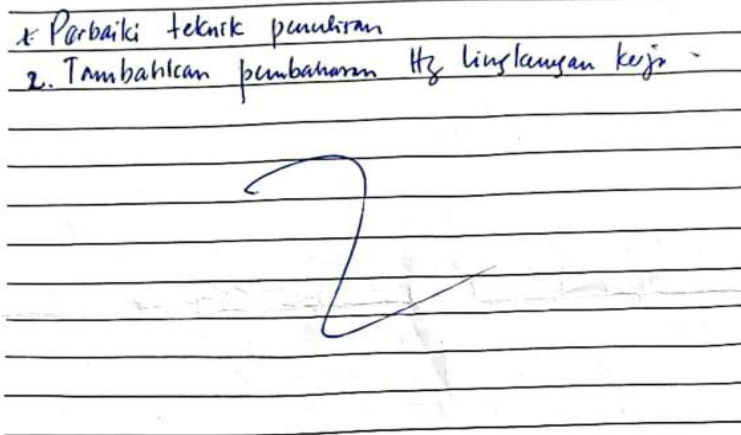 * Perbaiki teknik penulisan
2. Tambahkan pembahasan Hz lingkungan kerja.